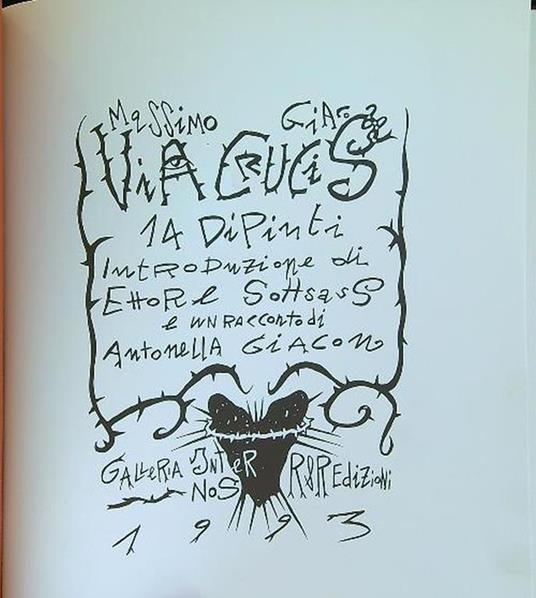 MASSIMO GIACON
ViA CRUCiS
14 DiPinti
INTRODUZIONE di
EttORE SOttsasS
e UN RACContO di
AntonELLA GIACON
GALLERIA INTER NOS R&R EdiZiONi
1993